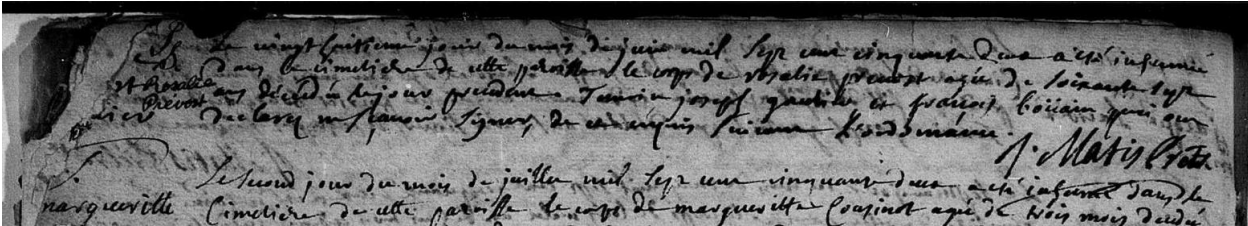 S.
Le vingt huitieme jour du mois de juin mil sept cent cinquante deux a été inhumé
dans le cimetiere de cette paroisse le corps de rosalie prevost agée de soixante sept
et Rosalie
Prevost
ans decedée le jour precedent Temoin joseph et françois qui ont
declaré ne sçavoir signer, de ce requis suivant l'ordonnance.
J. Matis Ptre
S.
Le second jour du mois de juillet mil sept cent cinquante deux a été inhumé dans le
margueritte
Cimetiere de cette paroisse le corps de margueritte Cousinot agée de trois mois decedé